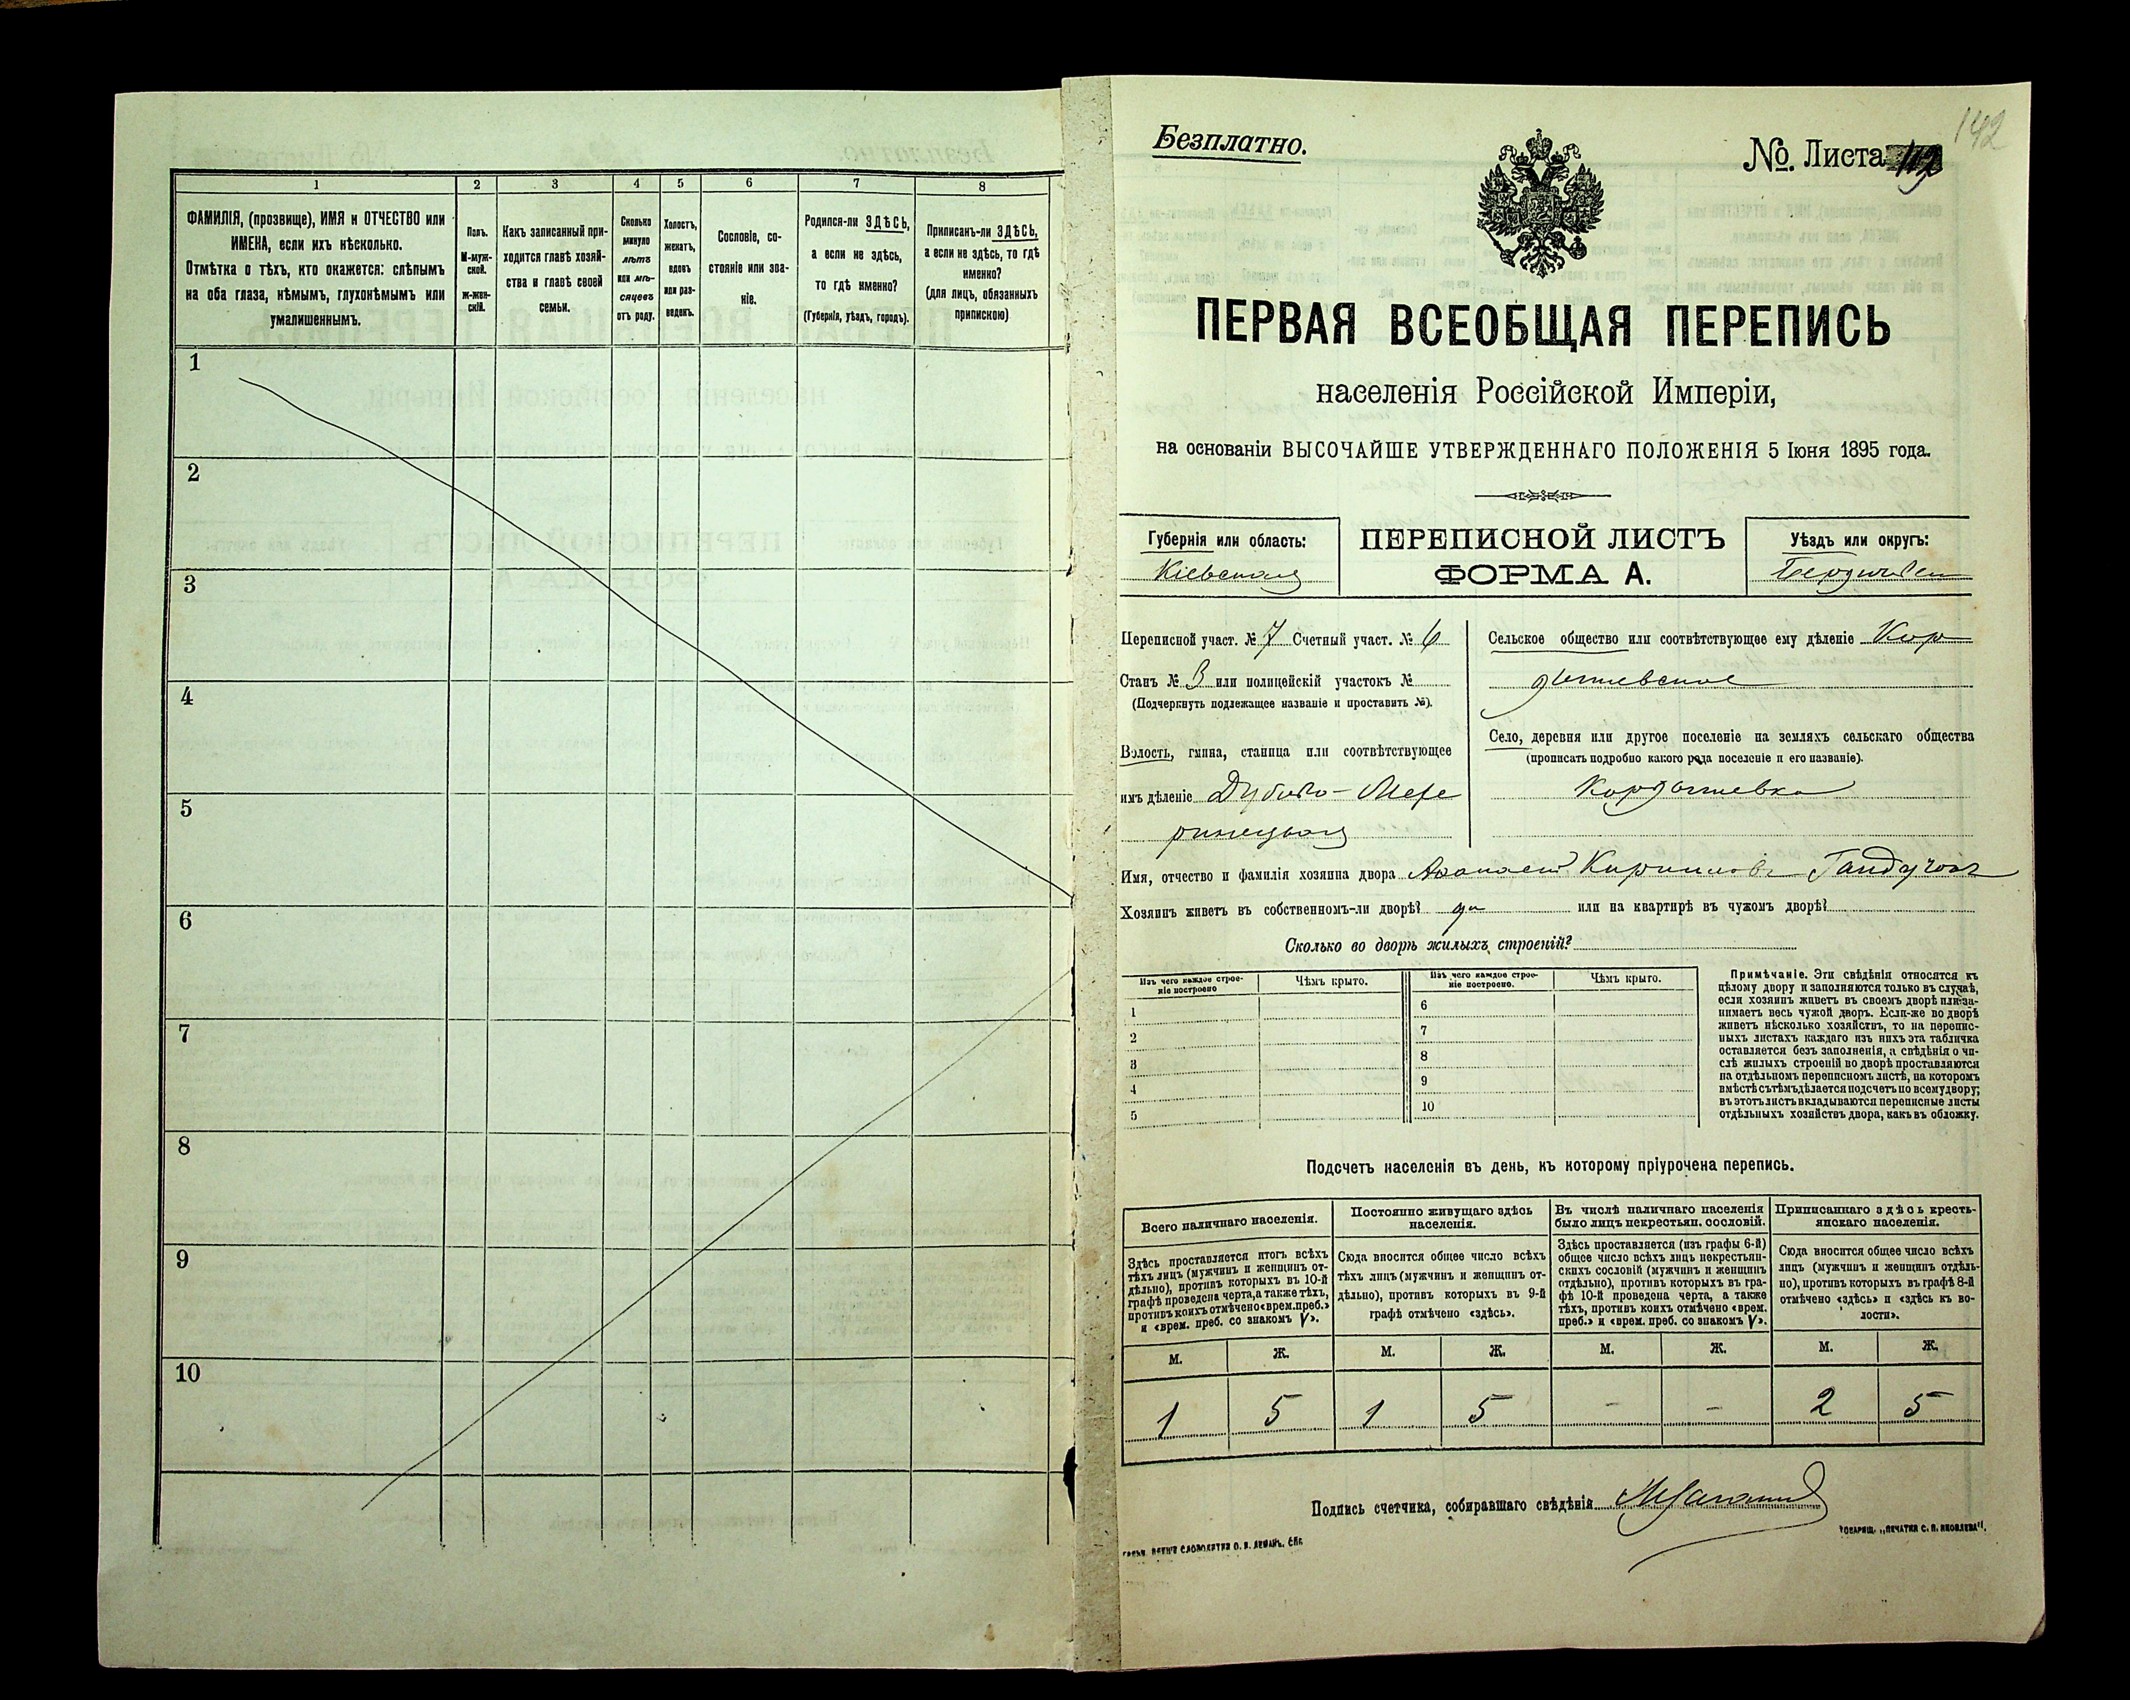 1 2 3 4 5 6 7 8
ФАМИЛІЯ, (прозвище), ИМЯ и ОТЧЕСТВО или
ИМЕНА, если ихъ нѣсколько.
Отмѣтка о тѣхъ, кто окажется: слѣпымъ
на оба глаза, нѣмымъ, глухонѣмымъ или
умалишеннымъ.
Полъ.
М-муж-
ской.
Ж-жен-
скій.
Какъ записанный при-
ходится главѣ хозяй-
ства и главѣ своей
семьи.
Сколько
минуло
лѣтъ
или мѣ-
сяцевъ
отъ роду.
Холостъ,
женатъ,
вдовъ
или раз-
веденъ.
Сословіе, со-
стояніе или зва-
ніе.
Родился-ли ЗДѢСЬ,
а если не здѣсь,
то гдѣ именно?
(Губернія, уѣздъ, городъ).
Приписанъ-ли ЗДѢСЬ,
а если не здѣсь, то гдѣ
именно?
(для лицъ, обязанныхъ
припискою)
1
2
3
4
5
6
7
8
9
10
142
Безплатно.
№. Листа
ПЕРВАЯ ВСЕОБЩАЯ ПЕРЕПИСЬ
населенія Россійской Имперіи,
на основаніи ВЫСОЧАЙШЕ УТВЕРЖДЕННАГО ПОЛОЖЕНІЯ 5 Іюня 1895 года.
Губернія или область:
Кіевская
ПЕРЕПИСНОЙ ЛИСТЪ
ФОРМА А.
Уѣздъ или округъ:
Переписной участ. № 7 Счетный участ. № 6
Станъ № 3 или полицейскій участокъ №
(Подчеркнуть подлежащее названіе и проставить №).
Волость, гмина, станица или соотвѣтствующее
имъ дѣленіе Дубово-Мехе
ринецкая
Сельское общество или соотвѣтствующее ему дѣленіе Кор
дышевское
Село, деревня или другое поселеніе на земляхъ сельскаго общества
(прописать подробно какого рода поселеніе и его названіе).
Кордышевка
Имя, отчество и фамилія хозяина двора Кириловъ
Хозяинъ живетъ въ собственномъ-ли дворѣ? да или на квартирѣ въ чужомъ дворѣ?
Сколько во дворѣ жилыхъ строеній?
Изъ чего каждое строе-
ніе построено
Чѣмъ крыто.
Изъ чего каждое строе-
ніе построено.
Чѣмъ крыто.
1 6
2 7
3 8
4 9
5 10
Примѣчаніе. Эти свѣдѣнія относятся къ
цѣлому двору и заполняются только въ случаѣ,
если хозяинъ живетъ въ своемъ дворѣ или за-
нимаетъ весь чужой дворъ. Если-же во дворѣ
живетъ нѣсколько хозяйствъ, то на перепис-
ныхъ листахъ каждаго изъ нихъ эта табличка
оставляется безъ заполненія, а свѣдѣнія о чи-
слѣ жилыхъ строеній во дворѣ проставляются
на отдѣльномъ переписномъ листѣ, на которомъ
вмѣстѣ съ тѣмъ дѣлается подсчетъ по всему двору;
въ этотъ листъ вкладываются переписные листы
отдѣльныхъ хозяйствъ двора, какъ въ обложку.
Подсчетъ населенія въ день, къ которому пріурочена перепись.
Всего наличнаго населенія.
Здѣсь проставляется итогъ всѣхъ
тѣхъ лицъ (мужчинъ и женщинъ от-
дѣльно), противъ которыхъ въ 10-й
графѣ проведена черта, а также тѣхъ,
противъ коихъ отмѣчено «врем. преб.»
и «врем. преб. со знакомъ V».
Постоянно живущаго здѣсь
населенія.
Сюда вносится общее число всѣхъ
тѣхъ лицъ (мужчинъ и женщинъ от-
дѣльно), противъ которыхъ въ 9-й
графѣ отмѣчено «здѣсь».
Въ числѣ наличнаго населенія
было лицъ некрестьян. сословій.
Здѣсь проставляется (изъ графы 6-й)
общее число всѣхъ лицъ некрестьян-
скихъ сословій (мужчинъ и женщинъ
отдѣльно), противъ которыхъ въ гра-
фѣ 10-й проведена черта, а также
тѣхъ, противъ коихъ отмѣчено «врем.
преб.» и «врем. преб. со знакомъ V».
Приписаннаго здѣсь кресть-
янскаго населенія.
Сюда вносится общее число всѣхъ
лицъ (мужчинъ и женщинъ отдѣль-
но), противъ которыхъ въ графѣ 8-й
отмѣчено «здѣсь» и «здѣсь къ во-
лости».
М. Ж. М. Ж. М. Ж. М. Ж.
1 5 1 5 - - 2 5
Подпись счетчика, собиравшаго свѣдѣнія
ТОВАРИЩ. „ПЕЧАТНЯ С. П. ЯКОВЛЕВА“.